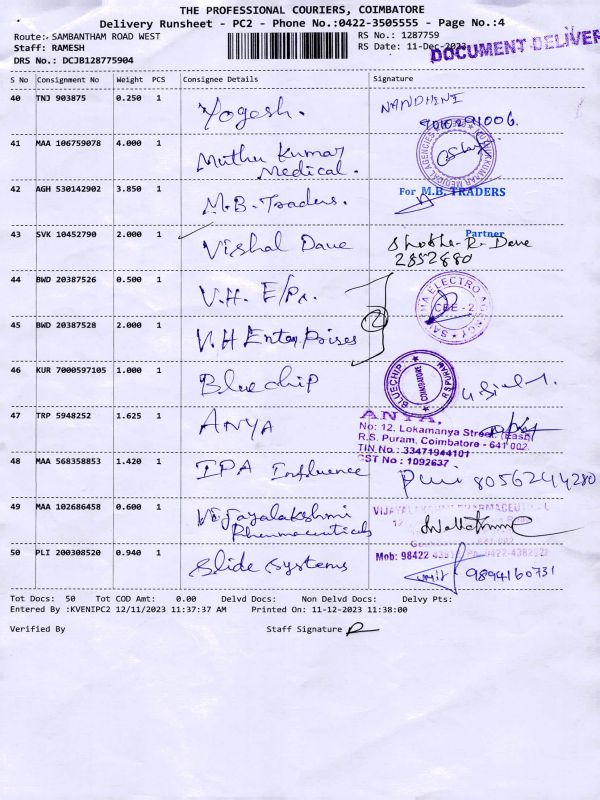 THE PROFESSIONAL COURIERS, COIMBATORE
Delivery Runsheet - PC2 - Phone No.:0422-3505555 - Page No.:4
Route: SAMBANTHAM ROAD WEST RS No.: 1287759
Staff: RAMESH RS Date: 11-Dec-2023
DOCUMENT DELIVER
DRS No.: DCJB128775904
S No Consignment No Weight PCS Consignee Details Signature
40 TNJ 903875 0.250 1 Yogesh. NANDHINI
41 MAA 106759078 4.000 1 Muthu Kumar Medical.
42 AGH 530142902 3.850 1 M.B. Traders. For M.B. TRADERS
Partner
43 SVK 10452790 2.000 1 Vishal Dave Shobha-R. Dave
2852880
44 BWD 20387526 0.500 1 V.H. E/Pr.
45 BWD 20387528 2.000 1 V.H Enterprises 2
46 KUR 7000597105 1.000 1 Bluechip BLUECHIP COIMBATORE R S PURAM
47 TRP 5948252 1.625 1 ANYA ANYA.
No: 12, Lokamanya Street, (East)
R.S. Puram, Coimbatore - 641 002.
TIN No : 33471944101
CST No : 1092637
48 MAA 568358853 1.420 1 IPA Influence 8056244280
49 MAA 102686458 0.600 1 Vijayalakshmi Pharmaceuticals
Mob: 98422
50 PLI 200308520 0.940 1 Slide Systems 9894160731
Tot Docs: 50 Tot COD Amt: 0.00 Delvd Docs: Non Delvd Docs: Delvy Pts:
Entered By :KVENIPC2 12/11/2023 11:37:37 AM Printed On: 11-12-2023 11:38:00
Verified By Staff Signature